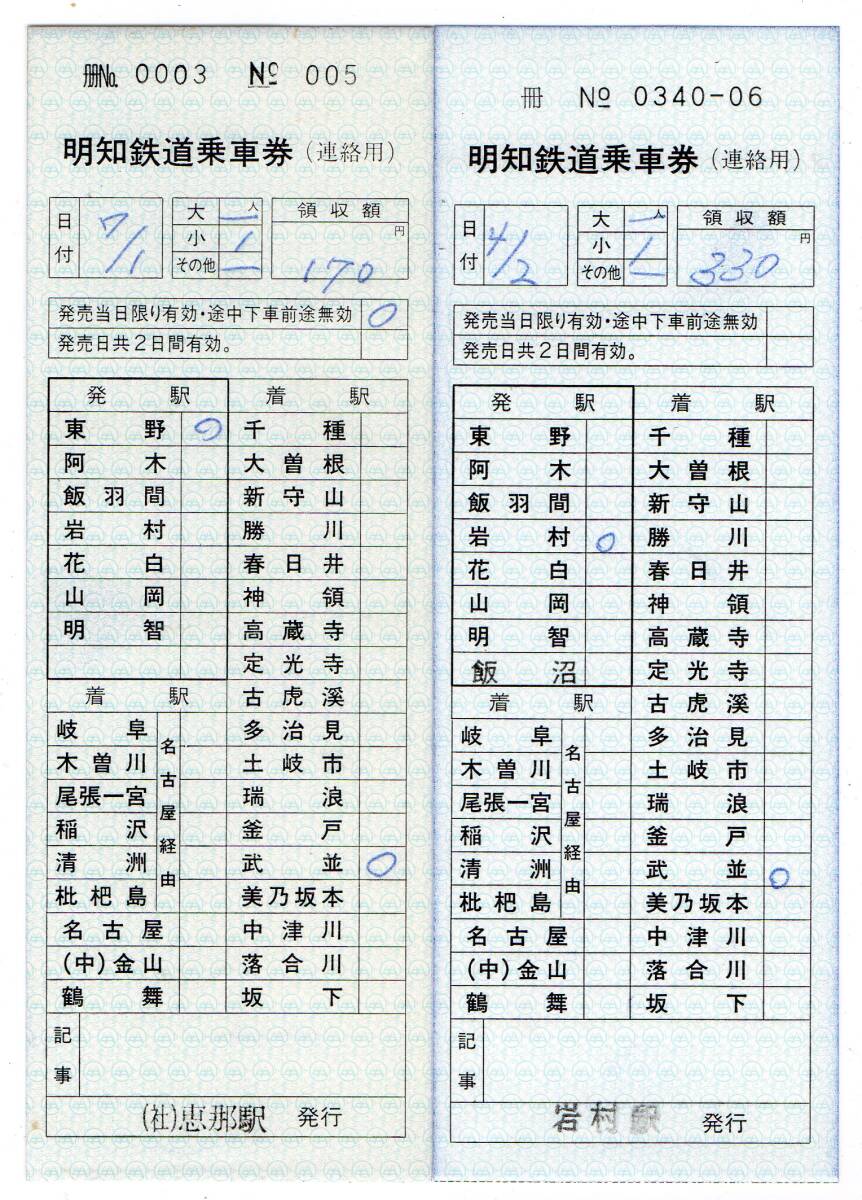 册No. 0003 No 005
明知鉄道乗車券(連絡用)
日付 7/1
大 一 人
小 1
その他 一
領収額
170 円
発売当日限り有効・途中下車前途無効 ○
発売日共2日間有効。
発駅 着駅
東野 ○ 千種
阿木 大曽根
飯羽間 新守山
岩村 勝川
花白 春日井
山岡 神領
明智 高蔵寺
定光寺
着駅 古虎溪
岐阜 多治見
木曽川 土岐市
尾張一宮 瑞浪
稲沢 釜戸
清洲 武並 ○
枇杷島 美乃坂本
名古屋経由
名古屋 中津川
(中)金山 落合川
鶴舞 坂下
記事
(社)恵那駅 発行
冊 No 0340-06
明知鉄道乗車券(連絡用)
日付 4/2
大 一 人
小 1
その他 一
領収額
330 円
発売当日限り有効・途中下車前途無効
発売日共2日間有効。
発駅 着駅
東野 千種
阿木 大曽根
飯羽間 新守山
岩村 ○ 勝川
花白 春日井
山岡 神領
明智 高蔵寺
飯沼 定光寺
着駅 古虎溪
岐阜 多治見
木曽川 土岐市
尾張一宮 瑞浪
稲沢 釜戸
清洲 武並 ○
枇杷島 美乃坂本
名古屋経由
名古屋 中津川
(中)金山 落合川
鶴舞 坂下
記事
岩村駅 発行